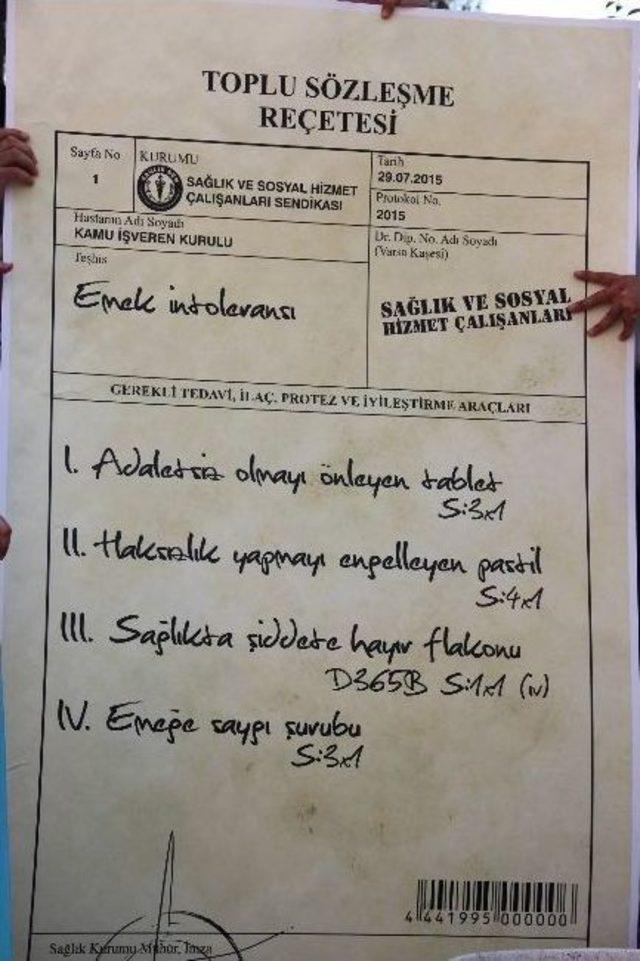 TOPLU SÖZLEŞME
REÇETESİ
Sayfa No
1
KURUMU
SAĞLIK VE SOSYAL HİZMET
ÇALIŞANLARI SENDİKASI
Tarih
29.07.2015
Protokol No.
2015
Hastanın Adı Soyadı
KAMU İŞVEREN KURULU
Dr. Dip. No. Adı Soyadı
(Varsa Kaşesi)
Teşhis
Emek intoleransı
SAĞLIK VE SOSYAL
HİZMET ÇALIŞANLARI
GEREKLİ TEDAVİ, İLAÇ, PROTEZ VE İYİLEŞTİRME ARAÇLARI
I. Adaletsiz olmayı önleyen tablet
S:3x1
II. Haksızlık yapmayı engelleyen pastil
S:4x1
III. Sağlıkta şiddete hayır flakonu
D365B S:1x1 (iv)
IV. Emeğe saygı şurubu
S:3x1
4 441995 000000
Sağlık Kurumu Mühür, İmza